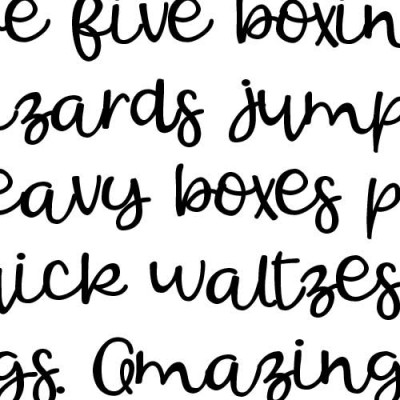 e five boxin
zards jump
eavy boxes p
uick waltzes
gs. Amazing